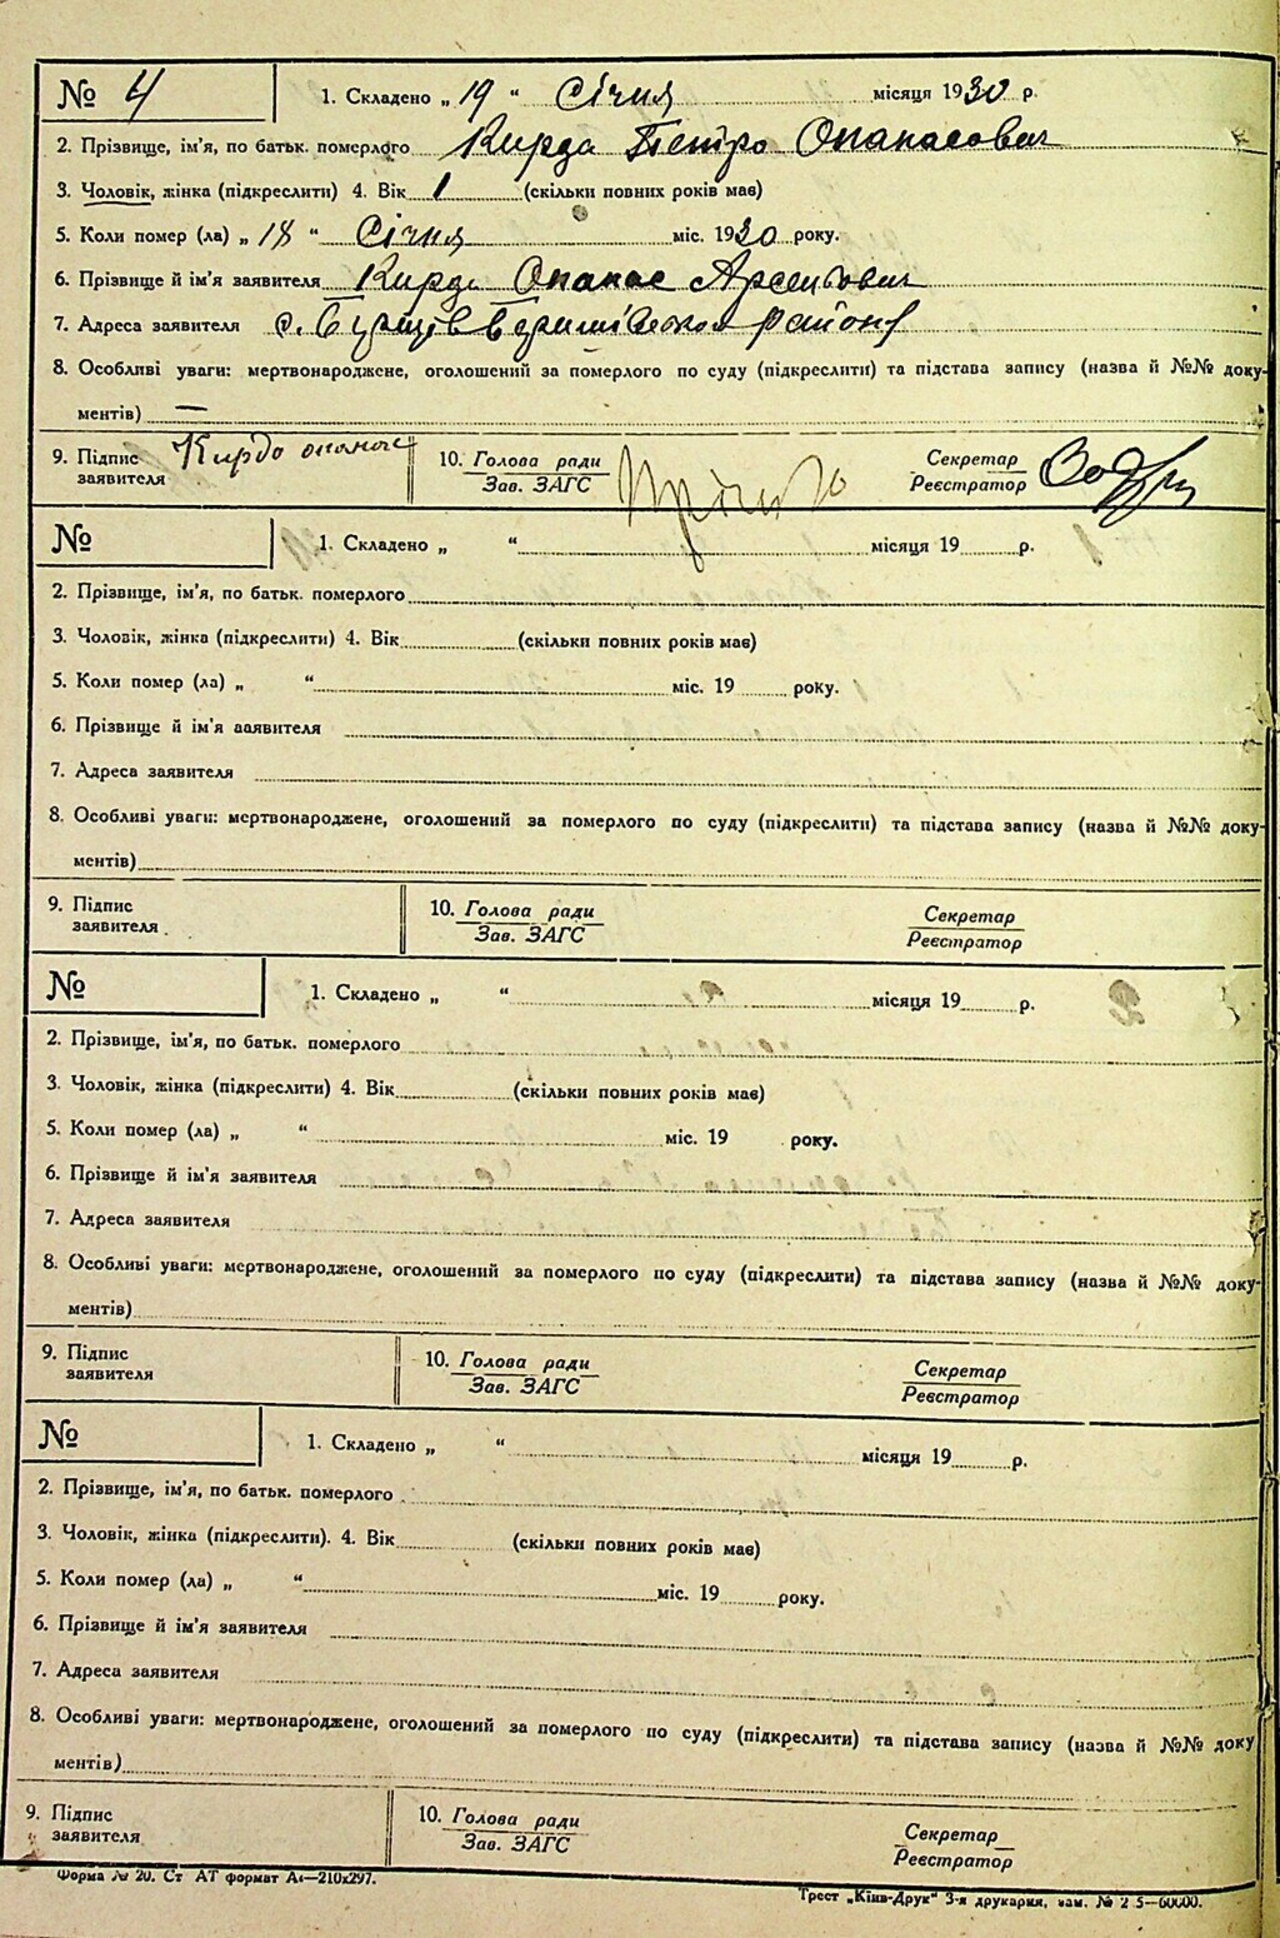 № 4 1. Складено „ 19 “ Січня місяця 1930 р.
2. Прізвище, ім'я, по батьк. померлого Кирда Петро Опанасович
3. Чоловік, жінка (підкреслити) 4. Вік 1 (скільки повних років має)
5. Коли помер (ла) „ 18 “ Січня міс. 1930 року.
6. Прізвище й ім'я заявителя Кирда Опанас Арсентович
7. Адреса заявителя с. району
8. Особливі уваги: мертвонароджене, оголошений за померлого по суду (підкреслити) та підстава запису (назва й №№ доку-
ментів) —
9. Підпис Кирдо опанас 10. Голова ради Секретар
заявителя Зав. ЗАГС Реєстратор
№ 1. Складено „ “ місяця 19 р.
2. Прізвище, ім'я, по батьк. померлого
3. Чоловік, жінка (підкреслити) 4. Вік (скільки повних років має)
5. Коли помер (ла) „ “ міс. 19 року.
6. Прізвище й ім'я заявителя
7. Адреса заявителя
8. Особливі уваги: мертвонароджене, оголошений за померлого по суду (підкреслити) та підстава запису (назва й №№ доку-
ментів)
9. Підпис 10. Голова ради Секретар
заявителя Зав. ЗАГС Реєстратор
№ 1. Складено „ “ місяця 19 р.
2. Прізвище, ім'я, по батьк. померлого
3. Чоловік, жінка (підкреслити) 4. Вік (скільки повних років має)
5. Коли помер (ла) „ “ міс. 19 року.
6. Прізвище й ім'я заявителя
7. Адреса заявителя
8. Особливі уваги: мертвонароджене, оголошений за померлого по суду (підкреслити) та підстава запису (назва й №№ доку-
ментів)
9. Підпис 10. Голова ради Секретар
заявителя Зав. ЗАГС Реєстратор
№ 1. Складено „ “ місяця 19 р.
2. Прізвище, ім'я, по батьк. померлого
3. Чоловік, жінка (підкреслити). 4. Вік (скільки повних років має)
5. Коли помер (ла) „ “ міс. 19 року.
6. Прізвище й ім'я заявителя
7. Адреса заявителя
8. Особливі уваги: мертвонароджене, оголошений за померлого по суду (підкреслити) та підстава запису (назва й №№ доку
ментів)
9. Підпис 10. Голова ради Секретар
заявителя Зав. ЗАГС Реєстратор
Форма № 20. Ст АТ формат А4—210x297.
Трест „Київ-Друк“ 3-я друкарня, зам. №